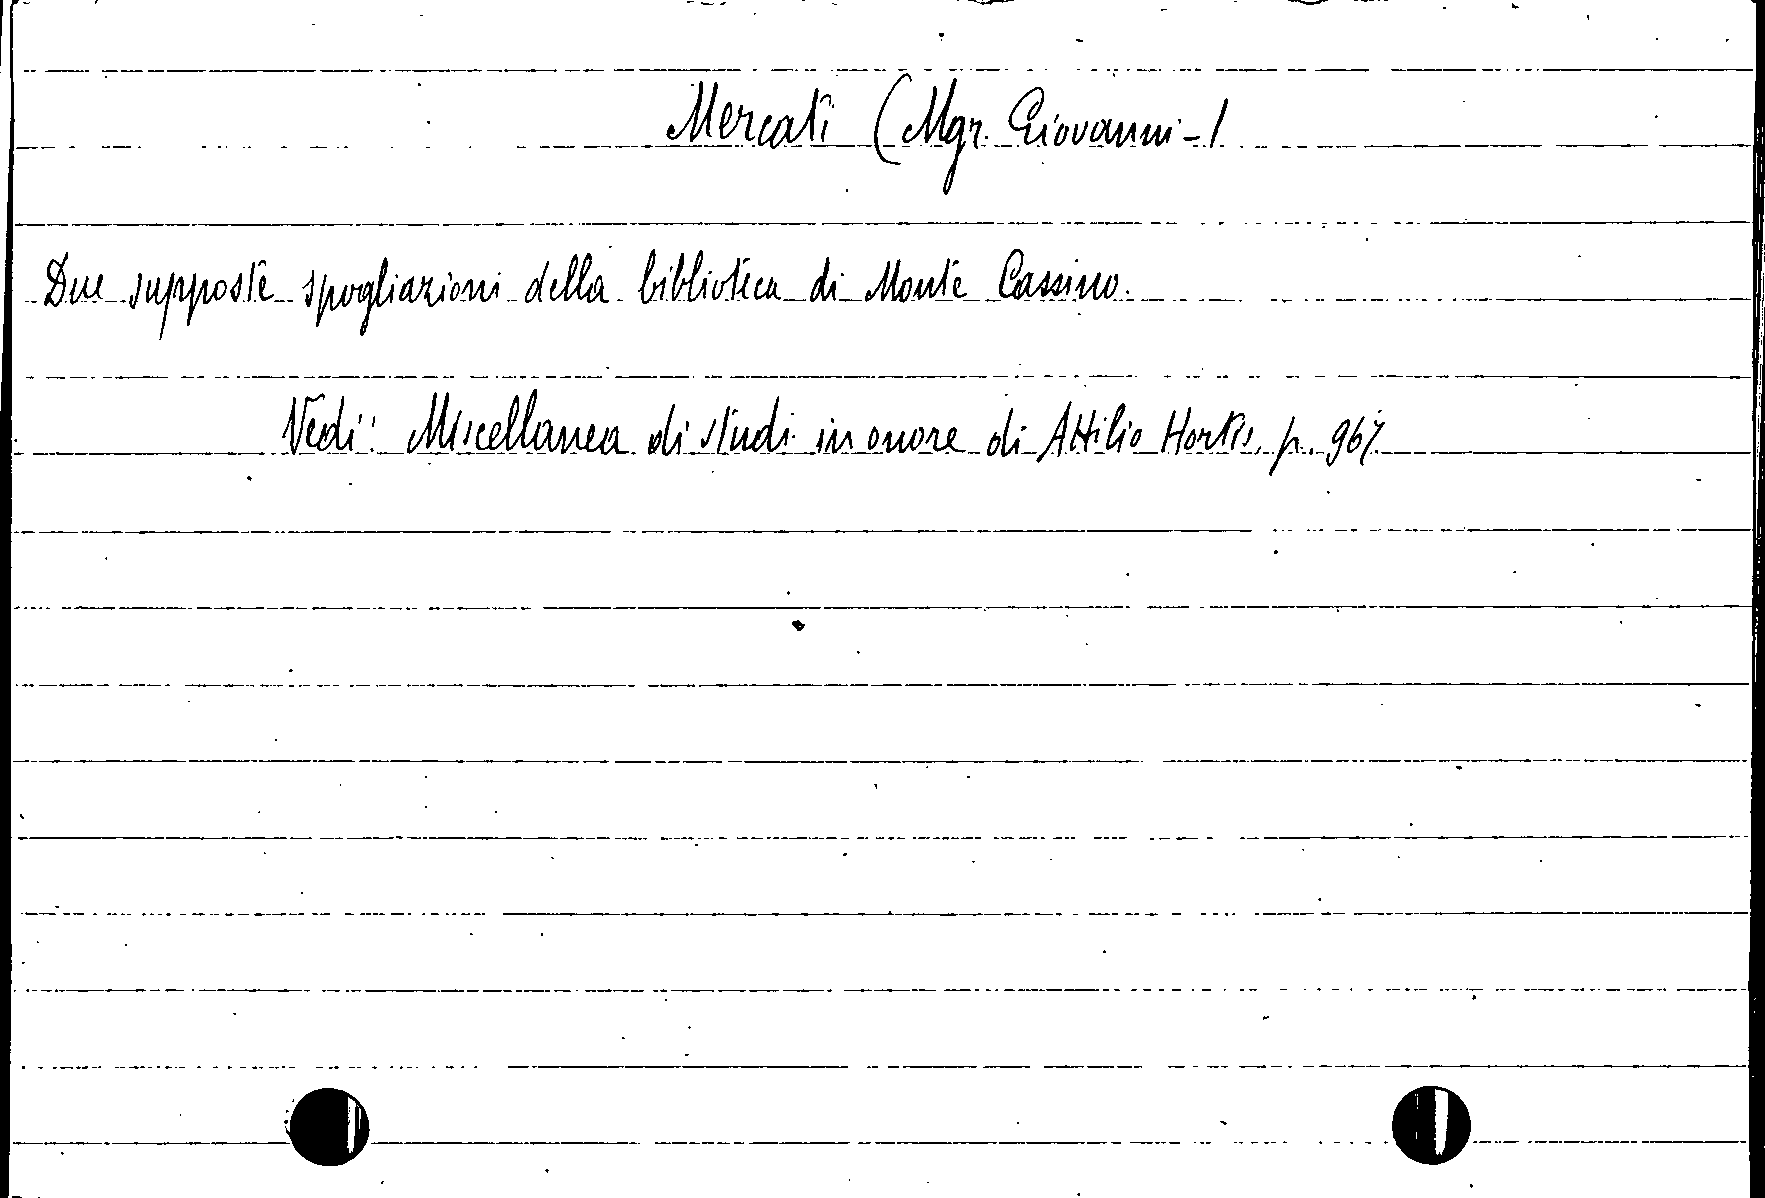 Mercati (Mgr. Giovanni-)
Due supposte spogliazioni della biblioteca di Monte Cassino.
Vedi: Miscellanea di studi in onore di Attilio Hortis, p. 967.